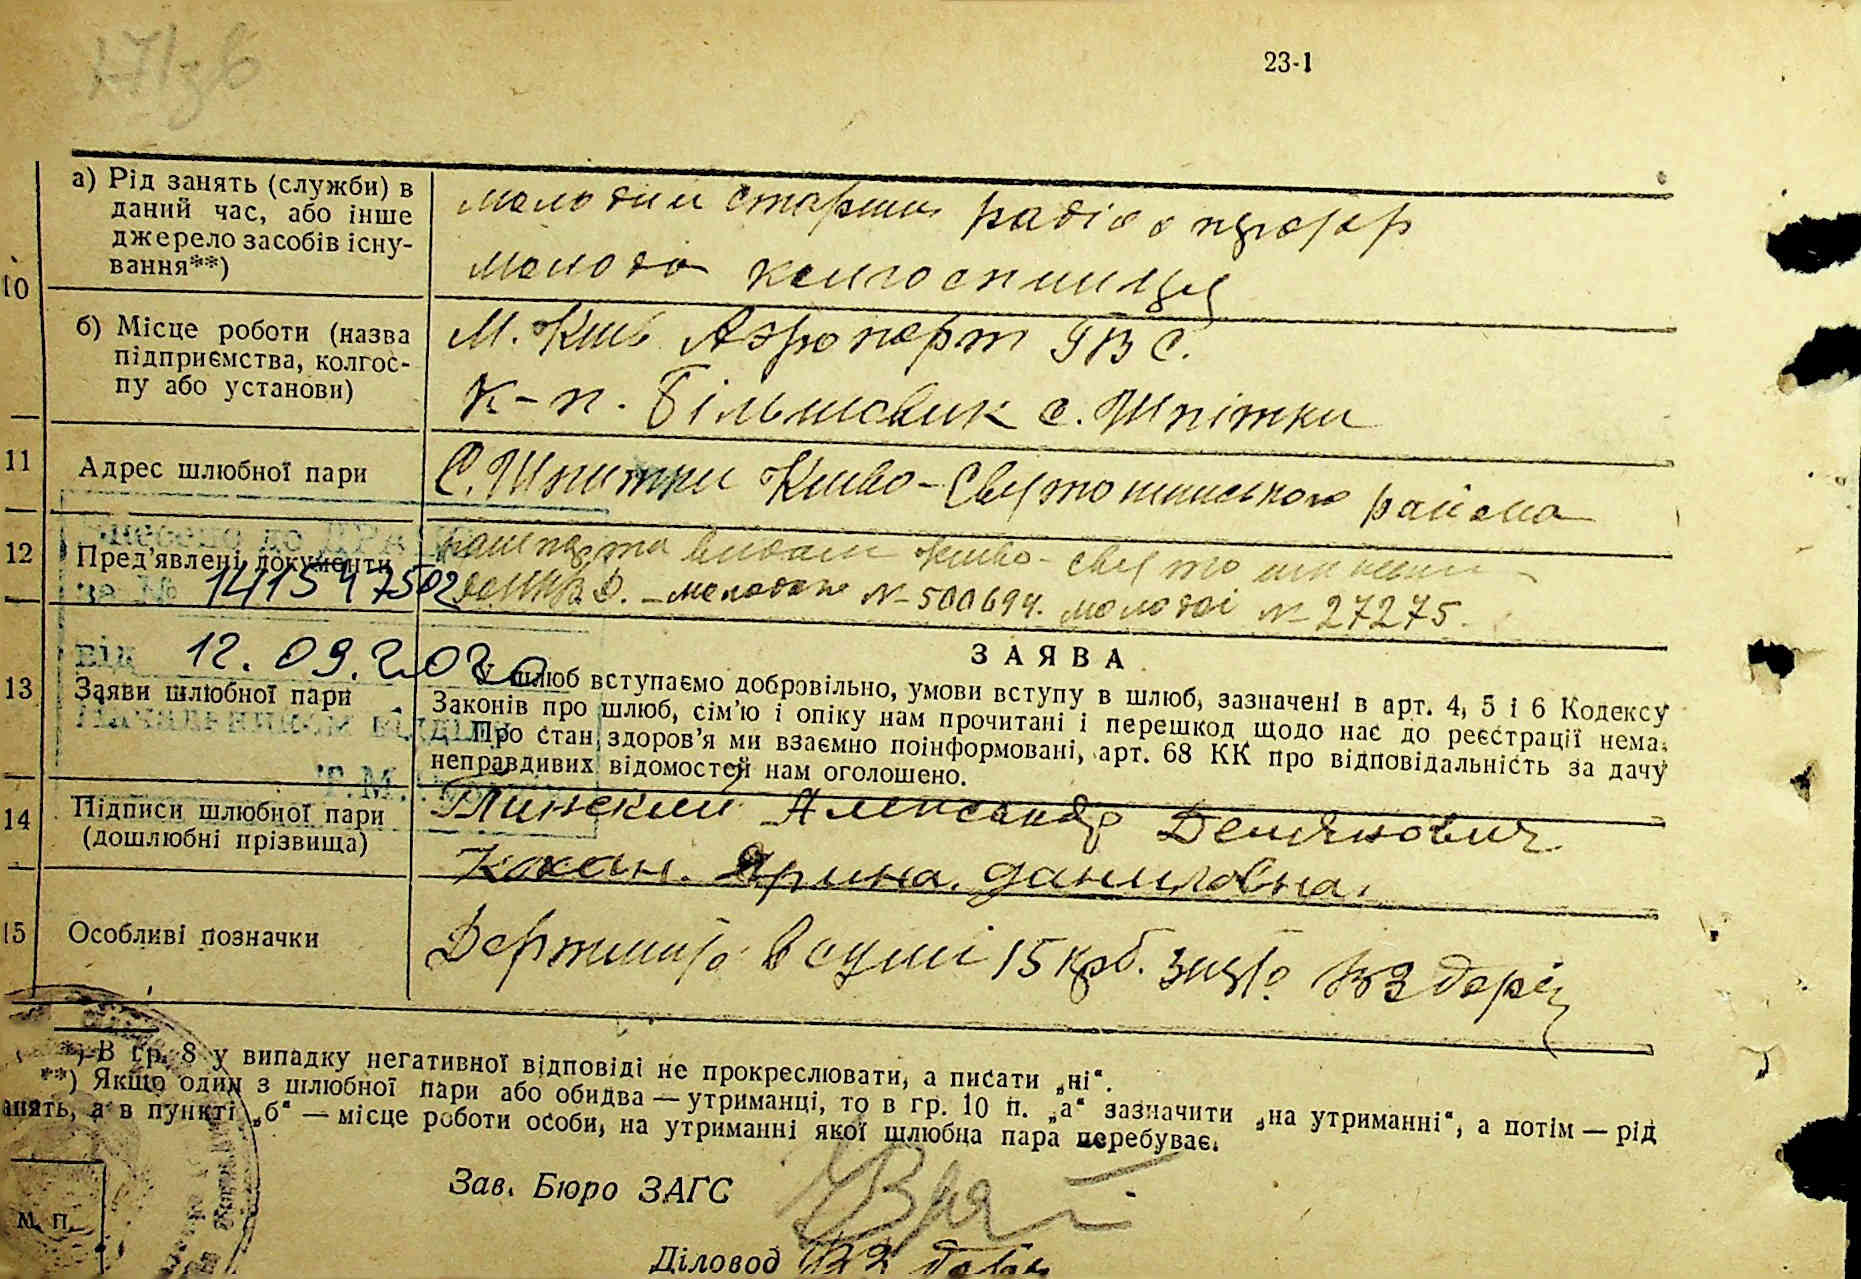 23-1
а) Рід занять (служби) в
даний час, або інше
джерело засобів існу-
вання**)
молодий старший радіооператор
молода колгоспниця
10
б) Місце роботи (назва
підприємства, колгос-
пу або установи)
М. Київ Аэропорт ГВС.
К-п. Більшовик с. Шпітки
11
Адрес шлюбної пари
С. Шпитки Києво-Святошинського района
12
Пред'явлені документи
паспорта видані Києво-Святошинским
молодого №500694. молодої №27275.
внесено до ДРА
за № 141597502
від 12.09.2020
Начальником відділу
Т.М.
13
Заяви шлюбної пари
ЗАЯВА
У шлюб вступаємо добровільно, умови вступу в шлюб, зазначені в арт. 4, 5 і 6 Кодексу
Законів про шлюб, сім'ю і опіку нам прочитані і перешкод щодо нас до реєстрації нема.
Про стан здоров'я ми взаємно поінформовані, арт. 68 КК про відповідальність за дачу
неправдивих відомостей нам оголошено.
14
Підписи шлюбної пари
(дошлюбні прізвища)
Глинский Александр Демянович
Кохан. Ярина. Даниловна.
15
Особливі позначки
Держмито в сумі 15 крб.
*) В гр. 8 у випадку негативної відповіді не прокреслювати, а писати „ні“.
**) Якщо один з шлюбної пари або обидва — утриманці, то в гр. 10 п. „а“ зазначити „на утриманні“, а потім — рід
анять, а в пункті „б“ — місце роботи особи, на утриманні якої шлюбна пара перебуває.
Зав. Бюро ЗАГС
М. П.
Діловод